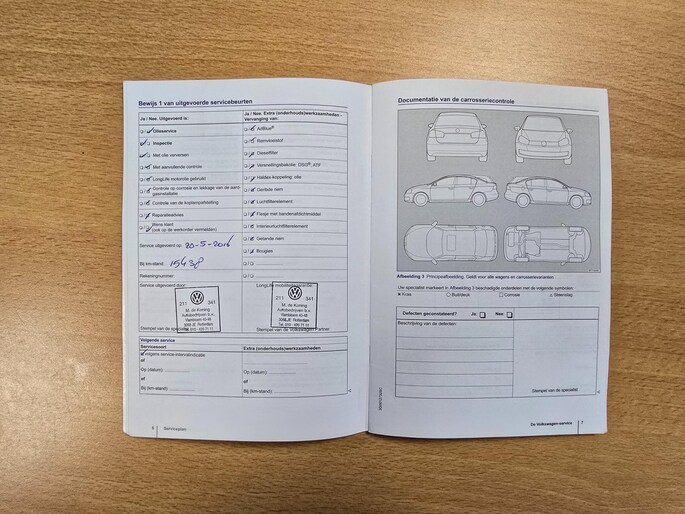 Bewijs 1 van uitgevoerde servicebeurten
Ja / Nee. Uitgevoerd is:
Olieservice
Inspectie
Met olie verversen
Met aanvullende controle
LongLife motorolie gebruikt
Controle op corrosie en lekkage van de aard-
gasinstallatie
Controle van de koplampafstelling
Reparatieadvies
Wens klant
(ook op de werkorder vermelden)
Service uitgevoerd op: 20-5-2016
Bij km-stand: 15438
Rekeningnummer:
Service uitgevoerd door:
211 341
M. de Koning
Autobedrijven b.v.
Stempel van de specialist
Ja / Nee. Extra (onderhouds)werkzaamheden -
Vervanging van:
AdBlue®
Remvloeistof
Dieselfilter
Versnellingsbakolie: DSG®, ATF
Haldex-koppeling: olie
Geribde riem
Luchtfilterelement
Flesje met bandenafdichtmiddel
Interieurluchtfilterelement
Getande riem
Bougies
211 341
M. de Koning
Autobedrijven b.v.
Stempel van de Volkswagen Partner
Volgende service
Servicesoort
Extra (onderhouds)werkzaamheden
volgens service-intervalindicatie
of
Op (datum):
of
Bij (km-stand):
Op (datum):
of
Bij (km-stand):
6 Serviceplan
Documentatie van de carrosseriecontrole
Afbeelding 3 Principeafbeelding: Geldt voor alle wagens en carrosserievarianten.
Uw specialist markeert in Afbeelding 3 beschadigde onderdelen met de volgende symbolen:
Kras Buil/deuk Corrosie Steenslag
Defecten geconstateerd? Ja: Nee:
Beschrijving van de defecten:
Stempel van de specialist
De Volkswagen-service 7